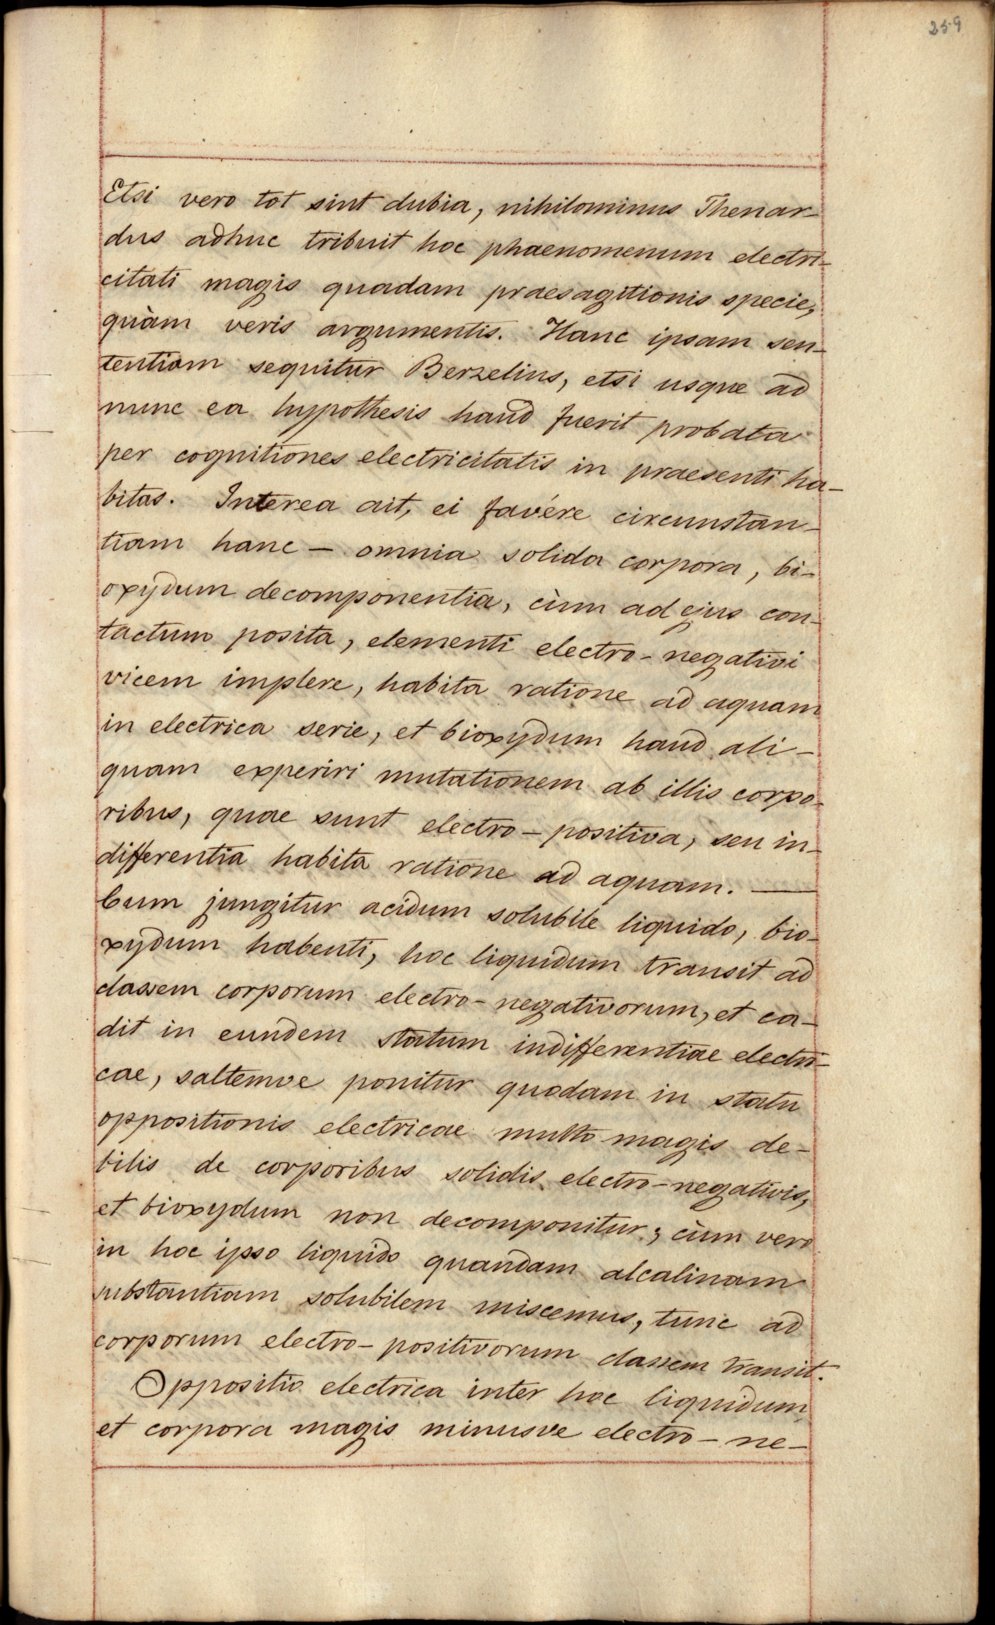 259
Etsi vero tot sint dubia, nihilominus Thenar-
dus adhuc tribuit hoc phaenomenum electri-
citati magis quadam praesagitionis specie,
quàm veris argumentis. Hanc ipsam sen-
tentiam sequitur Berzelius, etsi usque ad
nunc ea hypothesis haud fuerit probata
per cognitiones electricitatis in praesenti ha-
bitas. Interea ait, ei favére circunstan-
tiam hanc - omnia solida corpora, bi-
oxydum decomponentia, cùm ad ejus con-
tactum posita, elementi electro-negativi
vicem implere, habita ratione ad aquam
in electrica serie, et bioxydum haud ali-
quam experiri mutationem ab illis corpo-
ribus, quae sunt electro-positiva, seu in-
differentia habita ratione ad aquam. —
Cum jungitur acidum solubile liquido, bio-
xydum habenti, hoc liquidum transit ad
classem corporum electro-negativorum, et ca-
dit in eundem statum indifferentiae electri-
cae, saltemve ponitur quodam in statu
oppositionis electricae multo magis de-
bilis de corporibus solidis electro-negativis,
et bioxydum non decomponitur; cùm vero
in hoc ipso liquido quandam alcalinam
substantiam solubilem miscemus, tunc ad
corporum electro-positivorum classem transit.
Oppositio electrica inter hoc liquidum
et corpora magis minusve electro-ne-